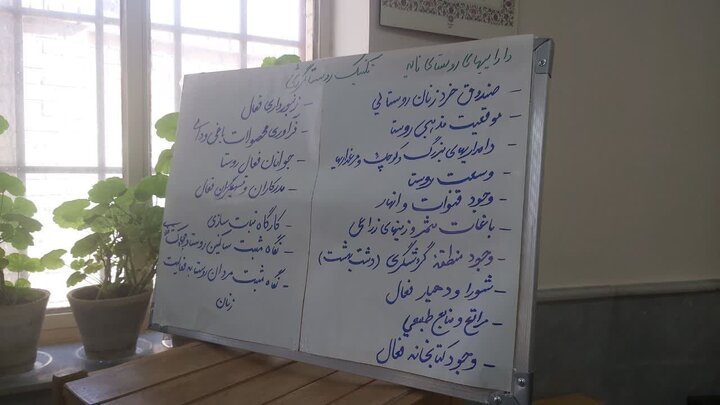 دارایهای روستای نایه
- صندوق خرد زنان روستایی
- موقعیت مذهبی روستا
- دامداریهای بزرگ و کوچک و مرغداریها
- وسعت روستا
- وجود قنوات و انهار
- باغات مثمر و زمینهای زراعی
- وجود منطقه گردشگری (دشت بهشت)
- شورا و دهیار فعال
- مراتع و منابع طبیعی
- وجود کتابخانه فعال
تکنیک روستا گردشی
- زنبورداری فعال
- فرآوری محصولات باغی و دامی
- جوانان فعال روستا
- مددکاران و تسهیلگران فعال
- کارگاه نبات سازی
- نگاه مثبت ساکنین روستا
- نگاه مثبت مردان روستا به فعالیت
زنان